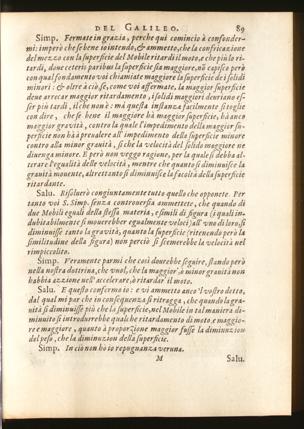 DEL GALILEO. 89
Simp. Fermate in grazia, perche qui comincio à confonder-
mi: imperò che se bene io intendo, & ammetto, che la confricazione
del mezzo con la superficie del Mobile ritarda il moto, e che più lo ri-
tardi, doue ceteris paribus la superficie sia maggiore, nõ capisco però
con qual fondamento voi chiamiate maggiore la superficie de i solidi
minori: & oltre à ciò se, come voi affermate, la maggior superficie
deue arrecar maggior ritardamento, i solidi maggiori deuriano es-
ser più tardi, il che non è: mà questa instanza facilmente si toglie
con dire, che se bene il maggiore hà maggior superficie, hà anco
maggior grauità, contro la quale l'impedimento della maggior su-
perficie non hà à preualere all'impedimento della superficie minore
contro alla minor grauità, sì che la velocità del solido maggiore ne
diuenga minore. E però non veggo ragione, per la quale si debba al-
terare l'egualità delle velocità, mentre che quanto si diminuisce la
grauità mouente, altrettanto si diminuisce la facoltà della superficie
ritardante.
Salu. Risoluerò congiuntamente tutto quello che opponete. Per
tanto voi S. Simp. senza controuersia ammettete, che quando di
due Mobili eguali della stessa materia, e simili di figura (i quali in-
dubitabilmente si mouerebber egualmente veloci) all'vno di loro, si
diminuisse tanto la grauità, quanto la superficie (ritenendo però la
similitudine della figura) non perciò si scemerebbe la velocità nel
rimpiccolito.
Simp. Veramente parmi che così dourebbe seguire, stando però
nella nostra dottrina, che vuol, che la maggior, ò minor grauità non
habbia azzione nell'accelerare, ò ritardar il moto.
Salu. E questo confermo io: e vi ammetto anco 'l vostro detto,
dal qual mi par che in conseguenza si ritragga, che quando la gra-
uità si diminuisse più che la superficie, nel Mobile in tal maniera di-
minuito si introdurrebbe qualche ritardamento di moto, e maggio-
re e maggiore, quanto à proporzione maggior fusse la diminuzion
del peso, che la diminuzion della superficie.
Simp. In ciò non hò io repugnanza veruna.
M Salu.